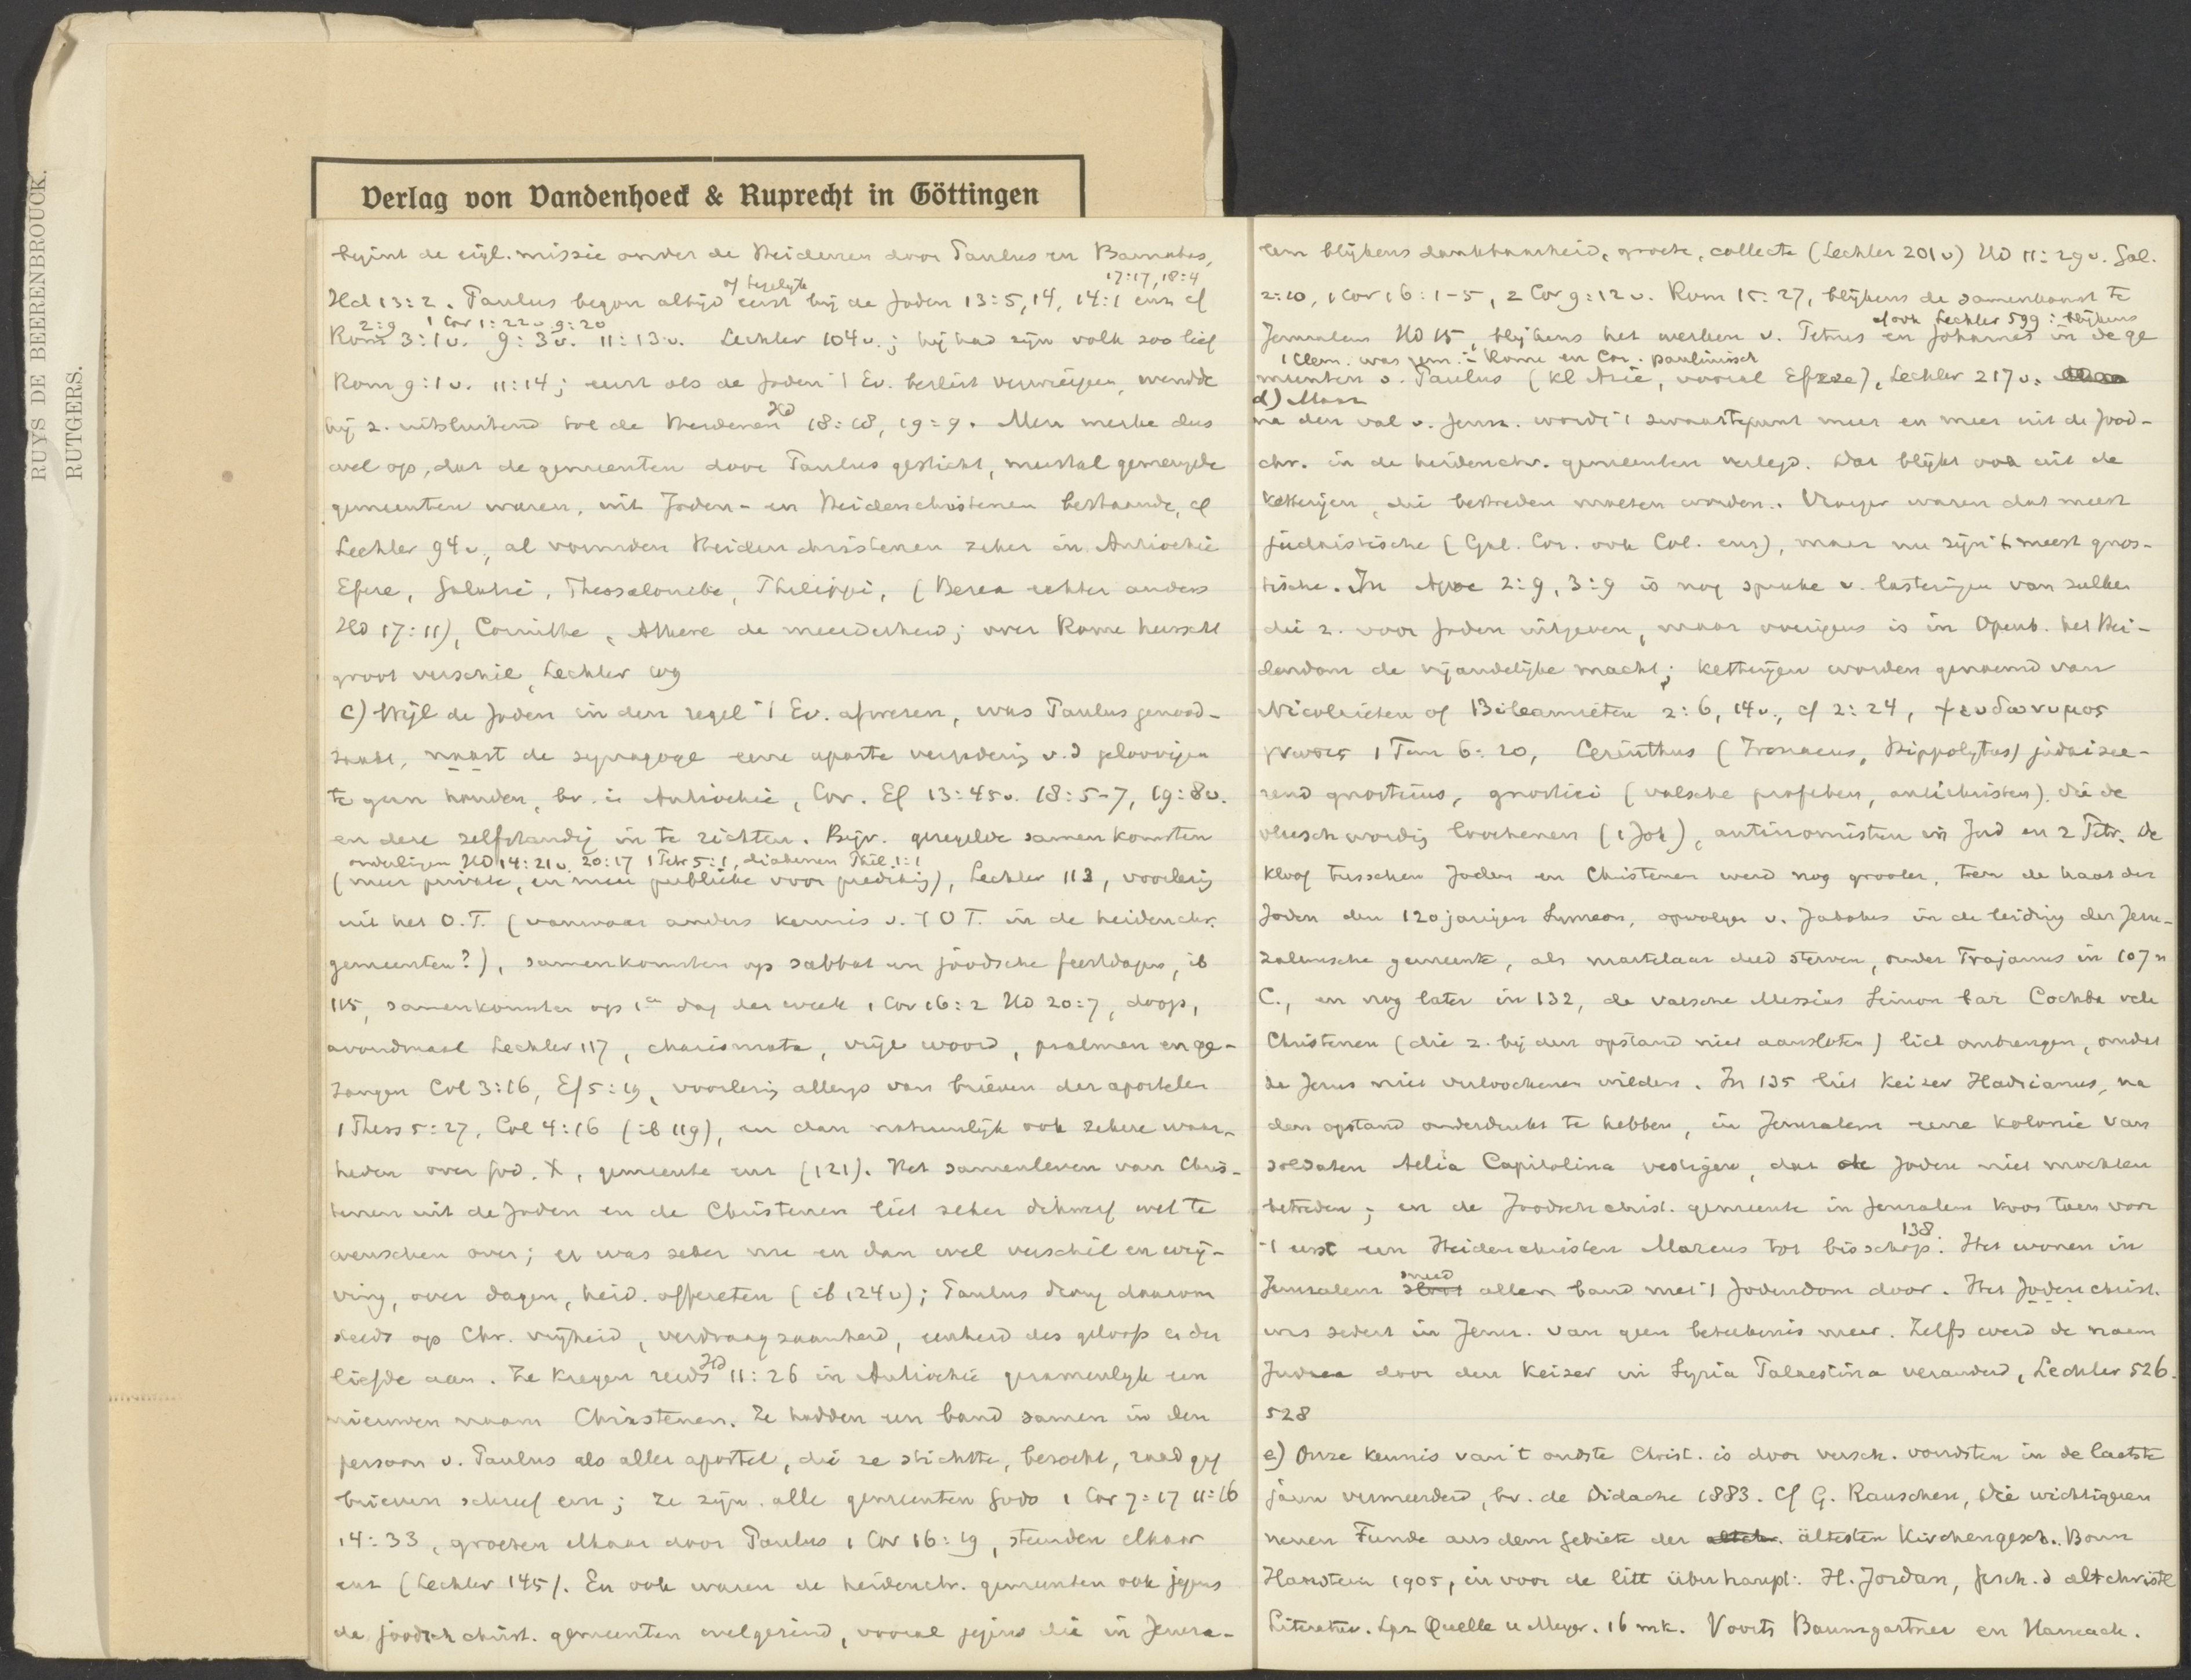 RUYS DE BEERENBROUCK.
RUTGERS.
Verlag von Vandenhoeck & Ruprecht in Göttingen
begint de eigl. missie onder de Heidenen door Paulus en Barnabas,
of tegelijk 17:17, 18:4
Hd 13:2. Paulus begon altijd eerst bij de Joden 13:5, 14, 14:1 enz cf
2:9 1 Cor 1:22v 9:20
Rom 3:1v. 9:3v. 11:13v. Lechler 104v.; hij had zijn volk zoo lief
Rom 9:1v. 11:14; eerst als de Joden 't Ev. beslist verwierpen, wendde
hij z. uitsluitend tot de Heidenen Hd 18:18, 19:9. Men merke dus
wel op, dat de gemeenten door Paulus gesticht, meestal gemengde
gemeenten waren, uit Joden- en Heidenchristenen bestaande, cf
Lechler 94v, al vormden Heidenchristenen zeker in Antiochië
Efeze, Galatië, Thessalonike, Philippi, (Berea echter anders
Hd 17:11), Corinthe, Athene de meerderheid; over Rome heerscht
groot verschil, Lechler 109
c) Wijl de Joden in den regel 't Ev. afwezen, was Paulus genood-
zaakt, naast de synagoge eene aparte vergadering v.d geloovigen
te gaan houden, bv. in Antiochië, Cor. Ef 13:45v. 18:5-7, 19:8v.
en deze zelfstandig in te richten. Bijv. geregelde samenkomsten
ouderlingen Hd 14:21v. 20:17 1 Petr 5:1, diakenen Phil. 1:1
(meer private, en meer publieke voor prediking), Lechler 113, voorlezing
uit het O.T. (vanwaar anders kennis v. 't O T. in de heidenchr.
gemeenten?), samenkomsten op sabbat en joodsche feestdagen, ib
115, samenkomsten op 1e dag der week 1 Cor 16:2 Hd 20:7, doop,
avondmaal Lechler 117, charismata, vrije woord, psalmen en ge-
zangen Col 3:16, Ef 5:19, voorlezing allengs van brieven der apostelen
1 Thess 5:27, Col 4:16 (ib 119), en dan natuurlijk ook zekere waar-
heden over God, X, gemeente enz (121). Het samenleven van Chris-
tenen uit de Joden en de Christenen liet zeker dikwerf wel te
wenschen over; er was zeker nu en dan wel verschil en wrij-
ving, over dagen, heid. offereten (ib 124v); Paulus drong daarom
steeds op Chr. vrijheid, verdraagzaamheid, eenheid des geloofs en der
liefde aan. Ze kregen reeds Hd 11:26 in Antiochië gezamenlijk een
nieuwen naam Christenen. Ze hadden een band samen in den
persoon v. Paulus als aller apostel, die ze stichtte, bezocht, raad gaf
brieven schreef enz; ze zijn alle gemeenten Gods 1 Cor 7:17 11:16
14:33, groeten elkaar door Paulus 1 Cor 16:19, steunden elkaar
enz (Lechler 145). En ook waren de heidenchr. gemeenten ook jegens
de joodsch christ. gemeenten welgezind, vooral jegens die in Jeruza-
lem blijkens dankbaarheid, groete, collecte (Lechler 201v) Hd 11:29v. Gal.
2:10, 1 Cor 16:1-5, 2 Cor 9:12v. Rom 15:27, blijkens de samenkomst te
cf ook Lechler 599: blijkens
Jeruzalem Hd 15, blijkens het werken v. Petrus en Johannes in de ge
1 Clem. was gem. Rome en Cor. paulinisch
meenten v. Paulus (Kl Azie, vooral Efeze), Lechler 217v.
d) Maar
na den val v. Jeruz. wordt 't zwaartepunt meer en meer uit de Jood-
chr. in de heidenchr. gemeenten verlegd. Dat blijkt ook uit de
ketterijen, die bestreden moeten worden. Vroeger waren dat meest
judaistische (Gal. Cor. ook Col. enz), maar nu zijn 't meest gnos-
tische. In Apoc 2:9, 3:9 is nog sprake v. lasteringen van zulken
die z. voor Joden uitgeven, maar overigens is in Openb. het Hei-
dendom de vijandelijke macht; ketterijen worden genoemd van
Nicolaieten of Bileamieten 2:6, 14v., cf 2:24, ψευδωνυμος
γνωσις 1 Tim 6:20, Cerinthus (Irenaeus, Hippolytus) judaisee-
rend gnosticus, gnostici (valsche profeten, antichristen) die de
vleeschwording loochenen (1 Joh), antinomisten in Jud en 2 Petr. De
kloof tusschen Joden en Christenen werd nog grooter, toen de haat der
Joden den 120 jarigen Symeon, opvolger v. Jakobus in de leiding der Jeru-
zalemsche gemeente, als martelaar deed sterven, onder Trajanus in 107 n
C., en nog later in 132, de valsche Messias Simon bar Cochba vele
Christenen (die z. bij den opstand niet aansloten) liet ombrengen, omdat
ze Jezus niet verloochenen wilden. In 135 liet Keizer Hadrianus, na
den opstand onderdrukt te hebben, in Jeruzalem eene kolonie van
soldaten Aelia Capitolina vestigen, dat de Joden niet mochten
betreden; en de Joodsch christ. gemeente in Jeruzalem koos toen voor
't eerst een Heidenchristen Marcus tot bisschop 138. Het wonen in
Jeruzalem sneed allen band met 't Jodendom door. Het Joden christ.
was sedert in Jeruz. van geen beteekenis meer. Zelfs werd de naam
Judaea door den Keizer in Syria Palaestina veranderd, Lechler 526.
528
e) Onze kennis van 't oudste Christ. is door versch. vondsten in de laatste
jaren vermeerderd, bv. de Didache 1883. Cf G. Rauschen, Die wichtigeren
neuen Funde aus dem Gebiete der ältesten Kirchengesch. Bonn
Hanstein 1905, en voor de litt überhaupt: H. Jordan, Gesch. d altchristl
Literatur. Lpz Quelle u Meyer. 16 mk. Voorts Baumgartner en Harnack.